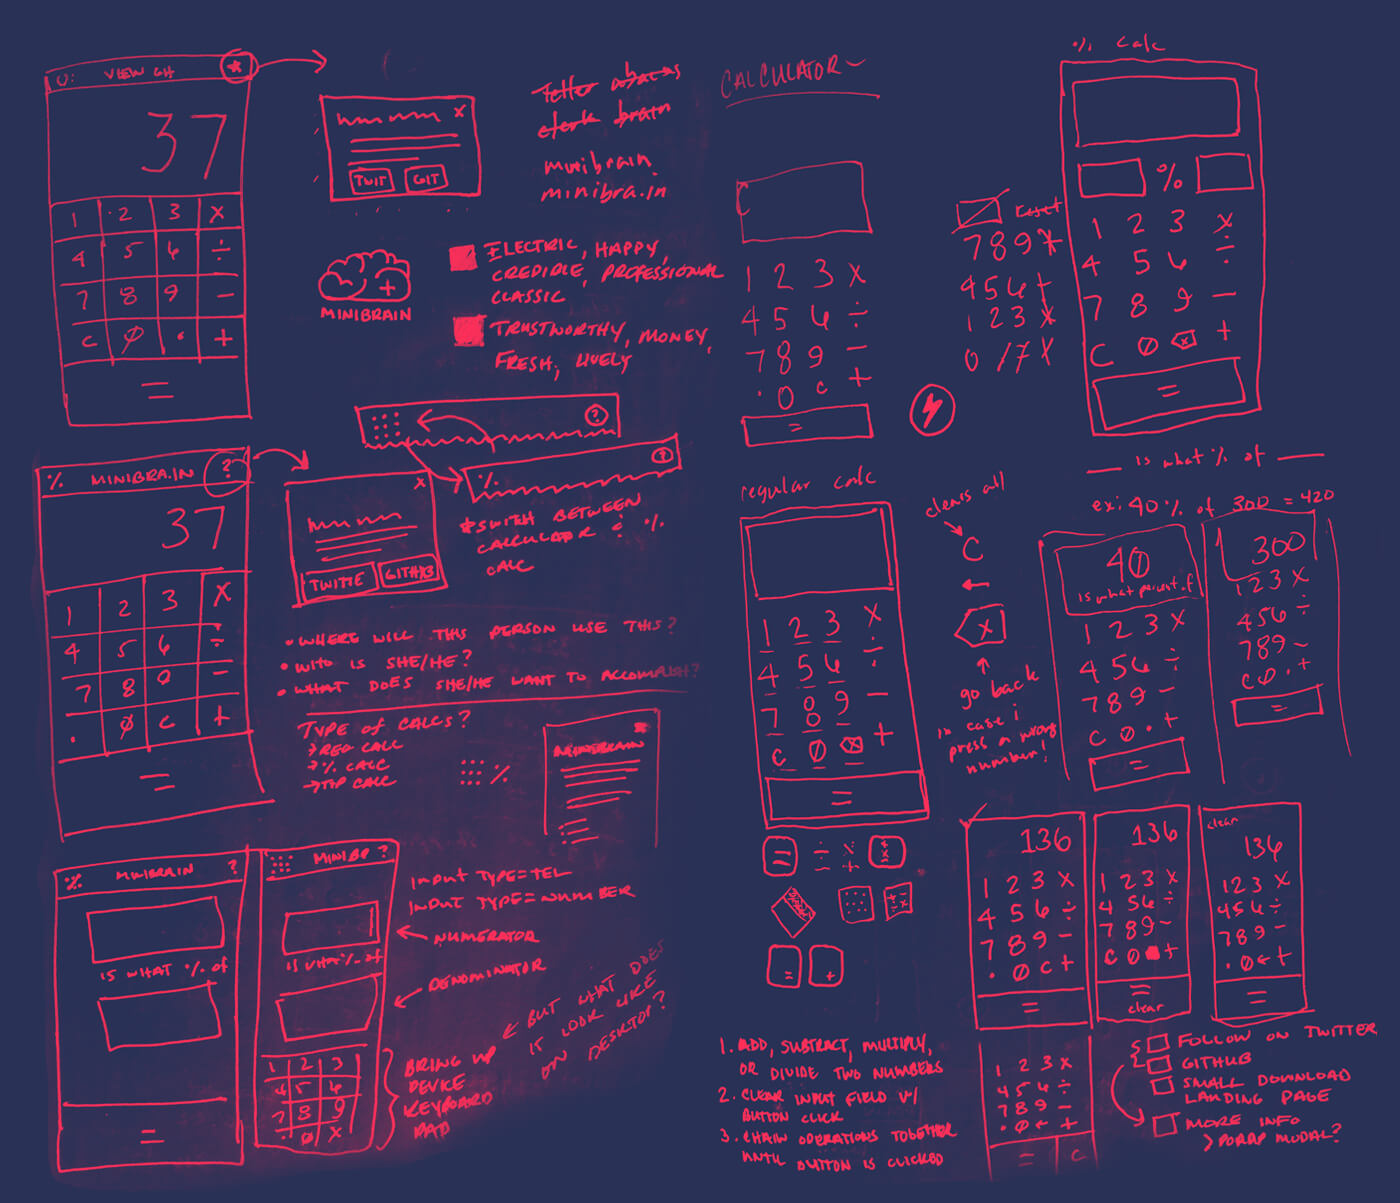 VIEW GH *
37
1 2 3 X
4 5 6 ÷
7 8 9 -
C 0 . +
=
X
TWIT GIT
Teller abacus
clerk brain
minibrain
minibra.in
MINIBRAIN
ELECTRIC, HAPPY,
CREDIBLE, PROFESSIONAL
CLASSIC
TRUSTWORTHY, MONEY,
FRESH, LIVELY
?
% ?
*SWITH BETWEEN
CALCULATOR & %
CALC
% MINIBRA.IN ?
37
1 2 3 X
4 5 6 ÷
7 8 9 -
. 0 C +
=
X
TWITTE GITHB
• WHERE WILL THIS PERSON USE THIS?
• WHO IS SHE/HE?
• WHAT DOES SHE/HE WANT TO ACCOMPLISH?
TYPE OF CALCS?
→ REG CALC
→ % CALC
→ TIP CALC
%
X
MINIBRAIN
% MINIBRAIN ?
IS WHAT % OF
=
MINIBR ?
IS WHAT % OF
1 2 3
4 5 6
7 8 9
. 0 X
INPUT TYPE=TEL
INPUT TYPE=NUMBER
← NUMERATOR
← DENOMINATOR
← BUT WHAT DOES
IT LOOK LIKE
ON DESKTOP?
BRING UP
DEVICE
KEYBOARD
PAD
CALCULATOR
1 2 3 X
4 5 6 ÷
7 8 9 -
. 0 C +
=
reset
7 8 9
4 5 6 +
1 2 3 X
0
% calc
%
1 2 3 X
4 5 6 ÷
7 8 9 -
C 0 X +
=
regular calc
1 2 3 X
4 5 6 ÷
7 8 9 -
C 0 X +
=
clears all
C
←
X
go back
in case i
press a wrong
number!
— is what % of —
ex: 40 % of 300 = 420
40
is what percent of
1 2 3 X
4 5 6 ÷
7 8 9 -
C 0 . +
=
300
1 2 3 X
4 5 6 ÷
7 8 9 -
C 0 . +
=
=
÷ X
- +
=
+
136
1 2 3 X
4 5 6 ÷
7 8 9 -
. 0 C +
=
136
1 2 3 X
4 5 6 ÷
7 8 9 -
C 0 +
=
clear
clear
136
1 2 3 X
4 5 6 ÷
7 8 9 -
. 0 ← +
=
1 2 3 X
4 5 6 ÷
7 8 9 -
. 0 ← +
= C
1. ADD, SUBTRACT, MULTIPLY,
OR DIVIDE TWO NUMBERS
2. CLEAR INPUT FIELD W/
BUTTON CLICK
3. CHAIN OPERATIONS TOGETHER
UNTIL BUTTON IS CLICKED
FOLLOW ON TWITTER
GITHUB
SMALL DOWNLOAD
LANDING PAGE
MORE INFO
> POPUP MODAL?